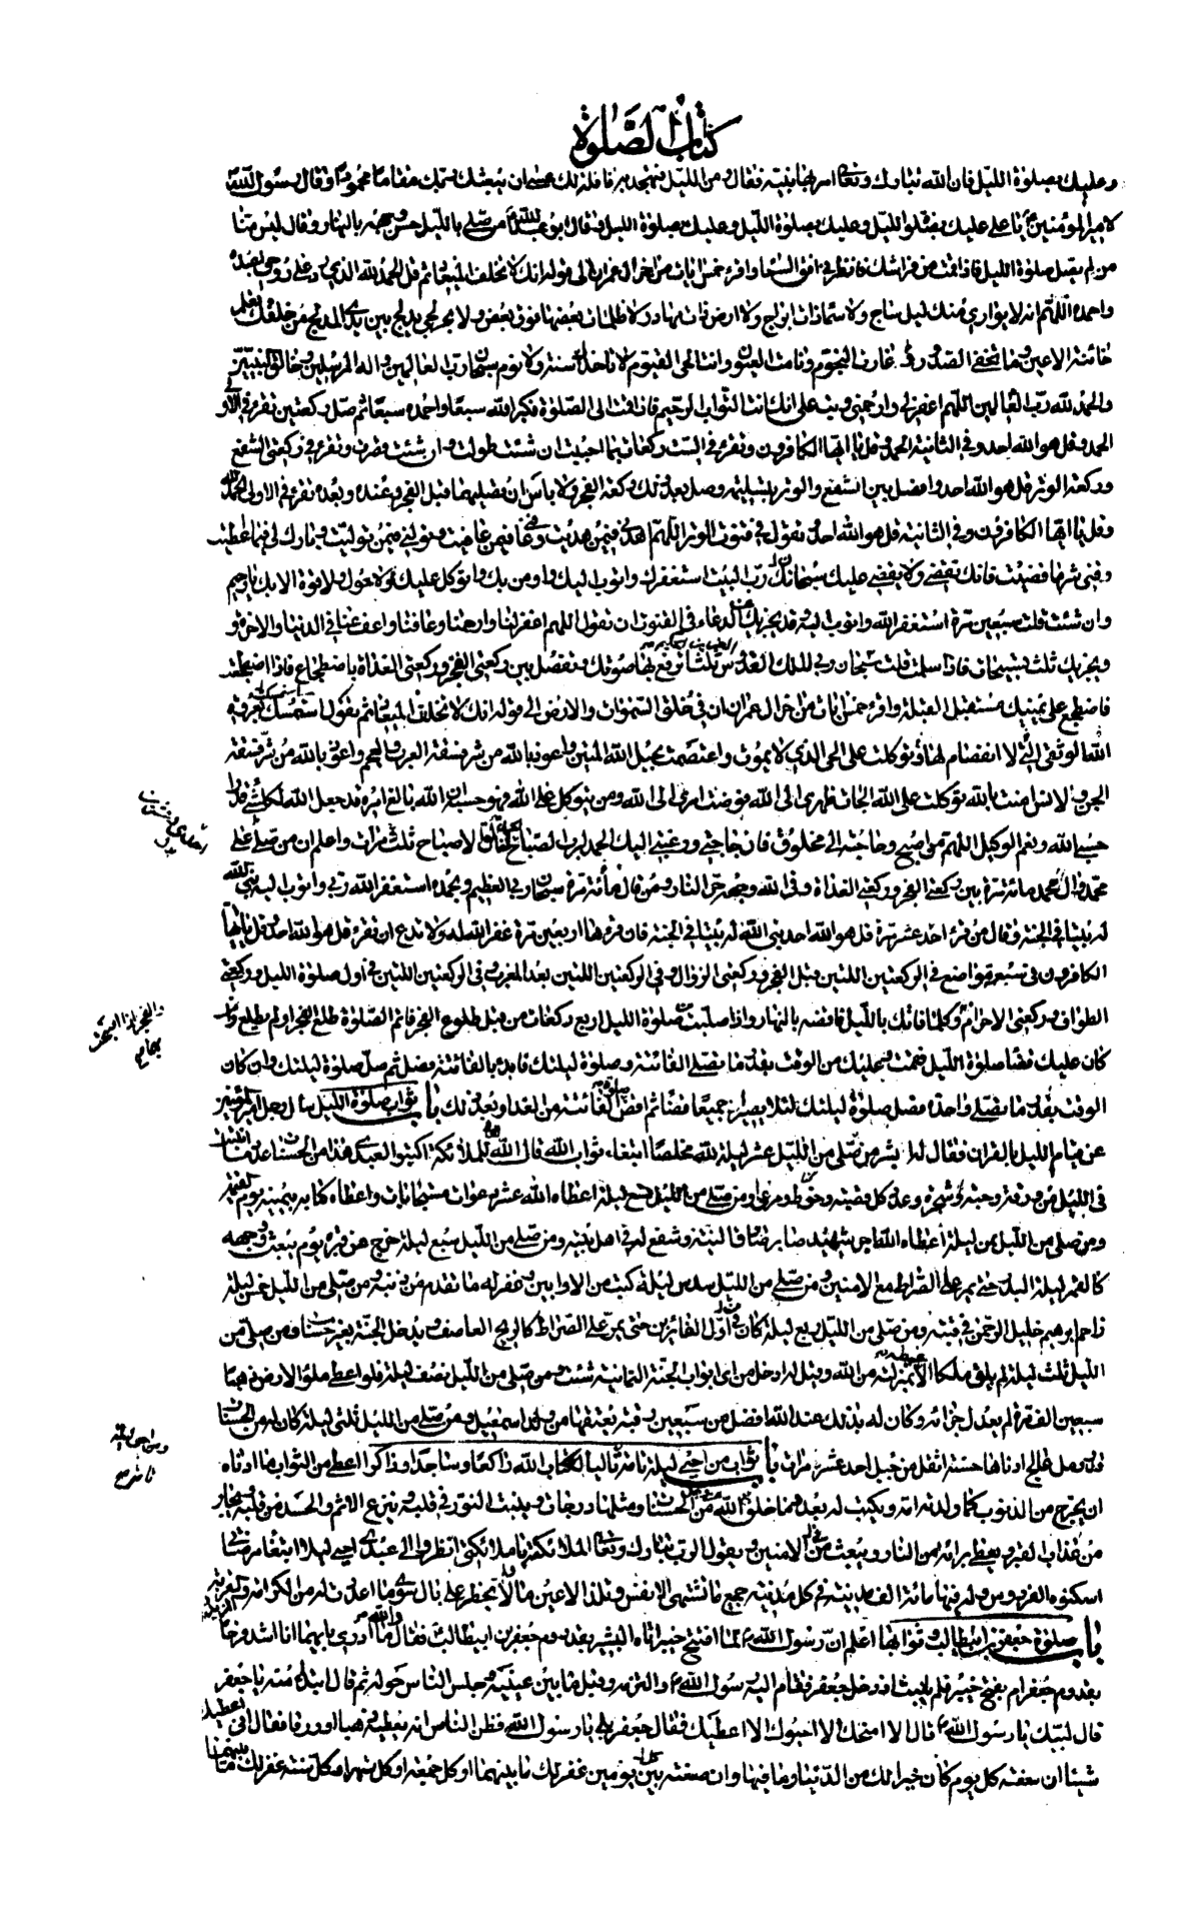 كتاب الصلوة
وعليك بصلوة الليل فان الله تبارك وتعالى امر بها نبيه فقال ومن الليل فتهجد به نافلة لك عسى ان يبعثك ربك مقاما محمودا وقال رسول الله
لامير المؤمنين يا علي عليك بصلوة الليل وعليك بصلوة الليل وعليك بصلوة الليل وقال ابو عبد الله من صلى بالليل حسن وجهه بالنهار وقال ليس منا
من لم يقبل صلوة الليل فاذا قمت من فراشك فانظر في افق السماء واقرء خمس ايات من اخر ال عمران الى قوله انك لا تخلف الميعاد ثم قل الحمد لله الذي رد علي روحي اعبده
واحمده اللهم انه لا يواري منك ليل ساج ولا سماء ذات ابراج ولا ارض ذات مهاد ولا ظلمات بعضها فوق بعض ولا بحر لجي يدلج بين يدي المدلج من خلقك تعلم
خائنة الاعين وما تخفي الصدور غارت النجوم ونامت العيون وانت الحي القيوم لا تاخذك سنة ولا نوم سبحان رب العالمين واله المرسلين وخالق النبيين
والحمد لله رب العالمين اللهم اغفر لي وارحمني وتب علي انك انت التواب الرحيم فاذا قمت الى الصلوة فكبر الله سبعا واحمده سبعا ثم صل ركعتين تقرء في الاولى
الحمد وقل هو الله احد وفي الثانية الحمد وقل يا ايها الكافرون وتقرء في الست ركعات بما احببت ان شئت طولت وان شئت قصرت وتقرء في ركعتي الشفع
وركعة الوتر قل هو الله احد وافصل بين الشفع والوتر بتسليمة وصل بعد ذلك ركعتي الفجر ولا باس ان تصليهما قبل الفجر وعنده وبعده تقرء في الاولى الحمد
وقل يا ايها الكافرون وفي الثانية قل هو الله احد وتقول في قنوت الوتر اللهم اهدني فيمن هديت وعافني فيمن عافيت وتولني فيمن توليت وبارك لي فيما اعطيت
وقني شر ما قضيت فانك تقضي ولا يقضى عليك سبحانك رب البيت استغفرك واتوب اليك واومن بك واتوكل عليك ولا حول ولا قوة الا بك يا رحيم
وان شئت قلت سبعين مرة استغفر الله واتوب اليه وقد يجزيك عن الدعاء في القنوت ان تقول اللهم اغفر لنا وارحمنا وعافنا واعف عنا في الدنيا والاخرة و
يجزيك ثلث تسبيحات فاذا سلمت قلت سبحان ربي الملك القدوس ثلثا ترفع بها صوتك وتفصل بين ركعتي الفجر وركعتي الغداة باضطجاع فاذا اضطجعت
فاضطجع على يمينك مستقبل القبلة واقرء خمس ايات من اخر ال عمران ان في خلق السموات والارض الى قوله انك لا تخلف الميعاد ثم تقول استمسكت بعروة
الله الوثقى التي لا انفصام لها وتوكلت على الحي الذي لا يموت واعتصمت بحبل الله المتين واعوذ بالله من شر فسقة العرب والعجم واعوذ بالله من شر فسقة
الجن والانس امنت بالله توكلت على الله الجات ظهري الى الله فوضت امري الى الله ومن يتوكل على الله فهو حسبه ان الله بالغ امره قد جعل الله لكل شئ قدرا
حسبي الله ونعم الوكيل اللهم من اصبح وحاجته الى مخلوق فان حاجتي ورغبتي اليك الحمد لرب الصباح الحمد لفالق الاصباح ثلث مرات واعلم ان من صلى على
محمد وال محمد مائة مرة بين ركعتي الفجر وركعتي الغداة وقى الله وجهه حر النار ومن قال مائة مرة سبحان ربي العظيم وبحمده استغفر الله ربي واتوب اليه بنى الله
له بيتا في الجنة وقال من قرء احد عشر مرة قل هو الله احد بنى الله له بيتا في الجنة فان قرءها اربعين مرة غفر الله له ولا تدع ان تقرء قل هو الله احد وقل يا ايها
الكافرون في تسعة مواضع في الركعتين اللتين قبل الفجر وركعتي الزوال وفي الركعتين اللتين بعد المغرب وفي الركعتين اللتين في اول صلوة الليل وركعتي
الطواف وركعتي الاحرام وكلما فاتك بالليل فاقضه بالنهار واذا صليت من صلوة الليل اربع ركعات من قبل طلوع الفجر فاتم الصلوة طلع الفجر او لم يطلع وان
كان عليك قضاء صلوة الليل فقمت وعليك من الوقت بقدر ما تصلي الفائتة وصلوة ليلتك فابدء بالفائتة فصل ثم صل صلوة ليلتك وان كان
الوقت بقدر ما تصلي واحدة فصل صلوة ليلتك لئلا يصيرا جميعا قضاء ثم اقض صلوة الفائتة من الغد او بعد ذلك باب ثواب صلوة الليل سال رجل امير المؤمنين
عن قيام الليل بالقران فقال له ابشر من صلى من الليل عشر ليلة لله مخلصا ابتغاء ثواب الله قال الله للملائكة اكتبوا لعبدي هذا من الحسنات عدد ما انبت
في الليل من ورقة وحبة وشجرة وعدد كل قصبة وخوط ومرعى ومن صلى من الليل تسع ليلة اعطاه الله عشر دعوات مستجابات واعطاه كتابه بيمينه يوم القيمة
ومن صلى من الليل ثمن ليلة اعطاه الله اجر شهيد صابر صادق النية وشفع له في اهل بيته ومن صلى من الليل سبع ليلة خرج من قبره يوم يبعث ووجهه
كالقمر ليلة البدر حتى يمر على الصراط مع الامنين ومن صلى من الليل سدس ليلة كتب من الاوابين وغفر له ما تقدم من ذنبه ومن صلى من الليل خمس ليلة
زاحم ابرهيم خليل الرحمن في قبته ومن صلى من الليل ربع ليلة كان في اول الفائزين حتى يمر على الصراط كالريح العاصف ويدخل الجنة بغير حساب ومن صلى من
الليل ثلث ليلة لم يلق ملكا الا غبطه بمنزلته من الله وقيل له ادخل من اي ابواب الجنة الثمانية شئت ومن صلى من الليل نصف ليلة فلو اعطي ملؤ الارض ذهبا
سبعين الف مرة لم يعدل جزائه وكان له بذلك عند الله افضل من سبعين رقبة يعتقها من ولد اسمعيل ومن صلى من الليل ثلثي ليلة كان له من الحسنات
قدر رمل عالج ادناها حسنة اثقل من جبل احد عشر مرات باب ثواب من احيى ليلة تامة تاليا لكتاب الله راكعا وساجدا وذاكرا اعطي من الثواب ما ادناه
ان يخرج من الذنوب كما ولدته امه ويكتب له بعدد ما خلق الله من الحسنات ومثلها درجات ويثبت النور في قبره وينزع الاثم والحسد من قلبه ويجار
من عذاب القبر ويعطى برائة من النار ويبعث من الامنين ويقول الرب تبارك وتعالى لملائكته يا ملائكتي انظروا الى عبدي احيى ليلة ابتغاء مرضاتي
اسكنوه الفردوس وله فيها مائة الف مدينة في كل مدينة جميع ما تشتهي الانفس وتلذ الاعين وما لا يخطر على بال سوى ما اعددت له من الكرامة والمزيد والقربة
باب صلوة جعفر بن ابيطالب وثوابها اعلم ان رسول الله لما افتتح خيبر اتاه البشير بقدوم جعفر بن ابيطالب فقال والله ما ادري بايهما انا اشد فرحا
بقدوم جعفر ام بفتح خيبر فلم يلبث اذ دخل جعفر فقام اليه رسول الله والتزمه وقبل ما بين عينيه وجلس الناس حوله ثم قال ابتداء منه يا جعفر
قال لبيك يا رسول الله قال الا امنحك الا احبوك الا اعطيك فقال جعفر بلى يا رسول الله فظن الناس انه يعطيه ذهبا او ورقا فقال اني اعطيك
شيئا ان صنعته كل يوم كان خيرا لك من الدنيا وما فيها وان صنعته بين كل يومين غفر لك ما بينهما او كل جمعة او كل شهر او كل سنة غفر لك ما بينهما